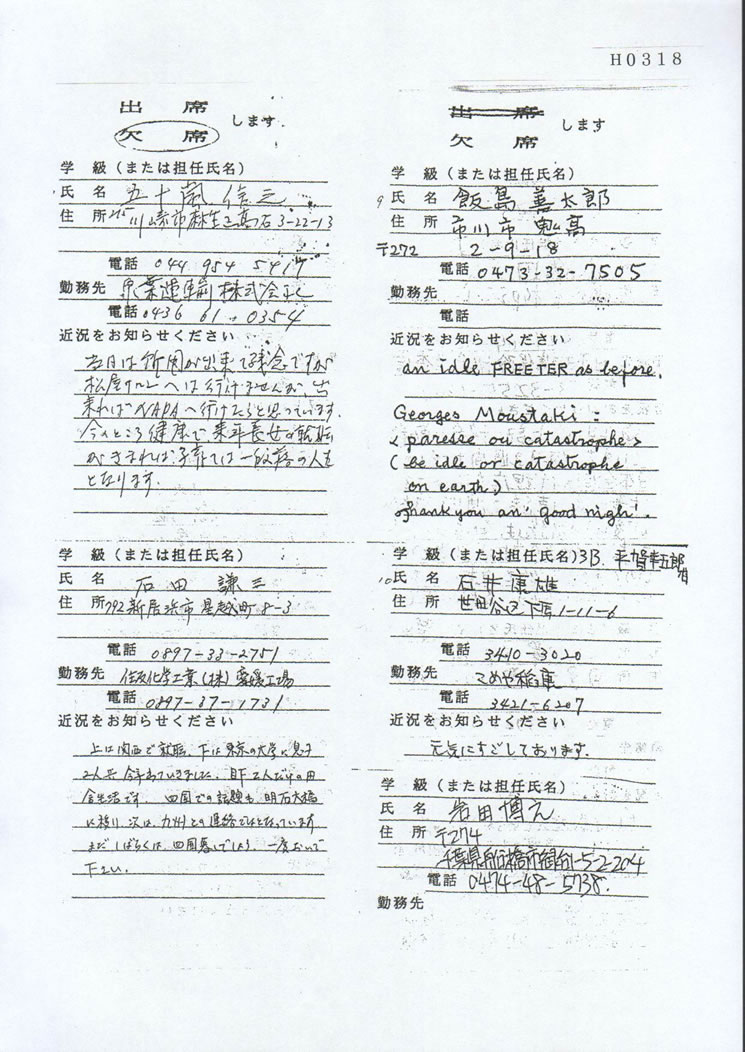 H0318
出　席
欠　席　します
学　級（または担任氏名）
氏　名　五十嵐　信之
住　所　215 川崎市麻生区高石3-22-13
電話　044 954 5417
勤務先　京葉運輸株式会社
電話　0436 61 0354
近況をお知らせください
当日は所用が出来て残念ですが
松屋サロンへは行けませんが、出
来ればNAPAへ行けたらと思っています。
今のところ健康で来年長女の転
がきまれば子育ては一段落の人も
となります。
学　級（または担任氏名）
氏　名　石田　謙三
住　所　792 新居浜市星越町8-3
電話　0897-33-2751
勤務先　住友化学工業(株)愛媛工場
電話　0897-37-1731
近況をお知らせください
上は関西で就職、下は東京の大学に息子
2人共 今年 いきました。目下2人だけの田
舎生活です。四国での話題も 明石大橋
に移り、次は、九州との連絡 となっています
まだしばらくは、四国暮しでしょう。一度おいで
下さい。
出　席
欠　席　します
学　級（または担任氏名）
9 氏　名　飯島　善太郎
住　所　市川市　鬼高
〒272　2-9-18
電話　0473-32-7505
勤務先
電話
近況をお知らせください
an idle FREETER as before.
Georges Moustaki :
< paresse ou catastrophe >
( be idle or catastrophe
on earth )
Thank you an' good nigh'.
学　級（または担任氏名）3B. 平賀幸五郎
10 氏　名　石井康雄
住　所　世田谷区下馬1-11-6
電話　3410-3020
勤務先　こめや稲庫
電話　3421-6207
近況をお知らせください
元気にすごしております。
学　級（または担任氏名）
氏　名　岩田博之
住　所　〒274
千葉県船橋市 5-2-204
電話　0474-48-5738.
勤務先